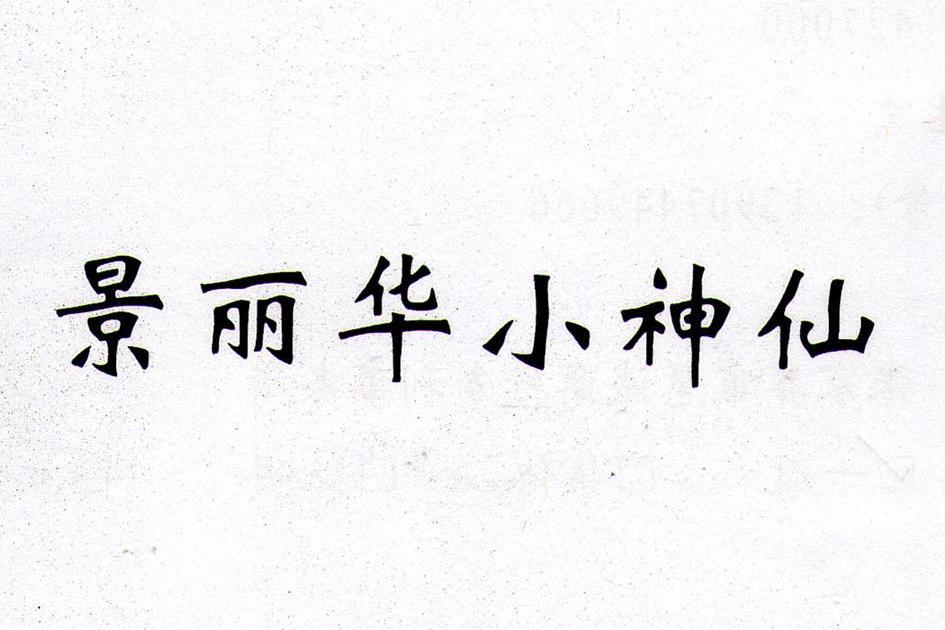 景丽华小神仙